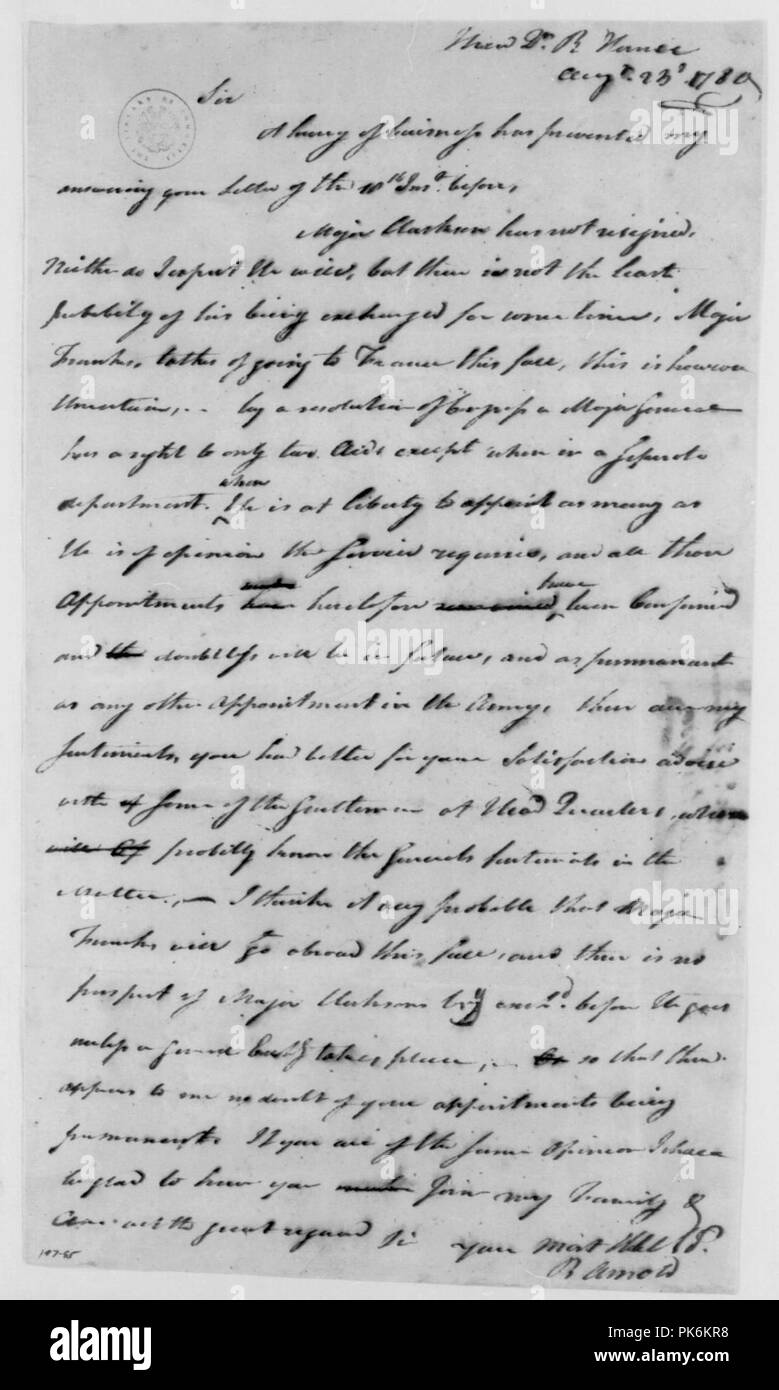 Head Qr. R House
Augt. 23d. 1780
Sir
A hurry of business has prevented my
answering your Letter of the 10th Inst. before,
Major Clarkson has not resigned,
Neither do I expect He will, but there is not the least
probility of his being exchanged for some time, Major
Franks, talks of going to France this fall, this is however
uncertain, by a resolution of Congress a Major General
has a right to only two Aids except when in a seperate
department. when He is at liberty to appoint as many as
He is of opinion the Service requires, and all those
Appointments heretofore have been Confirmed
and doubtless will be in future, and as permanent
as any other appointment in the Army, these are my
sentiments, you had better for your Satisfaction advise
with some of the Gentlemen at Head Quarters, who
will probilly know the Generals sentiments in the
Matter, I think it very probable that Major
Franks will go abroad this fall, and there is no
prospect of Major Clarksons beg exd. before He goes
unless a general takes place, so that there
appears to me no doubt of your appointments being
permanent. If you are of the same Opinion I shall
be glad to have you Join my Family &
am with great regard Sir your most
B Arnold
197-65
alamy
Image ID: PK6KR8
www.alamy.com